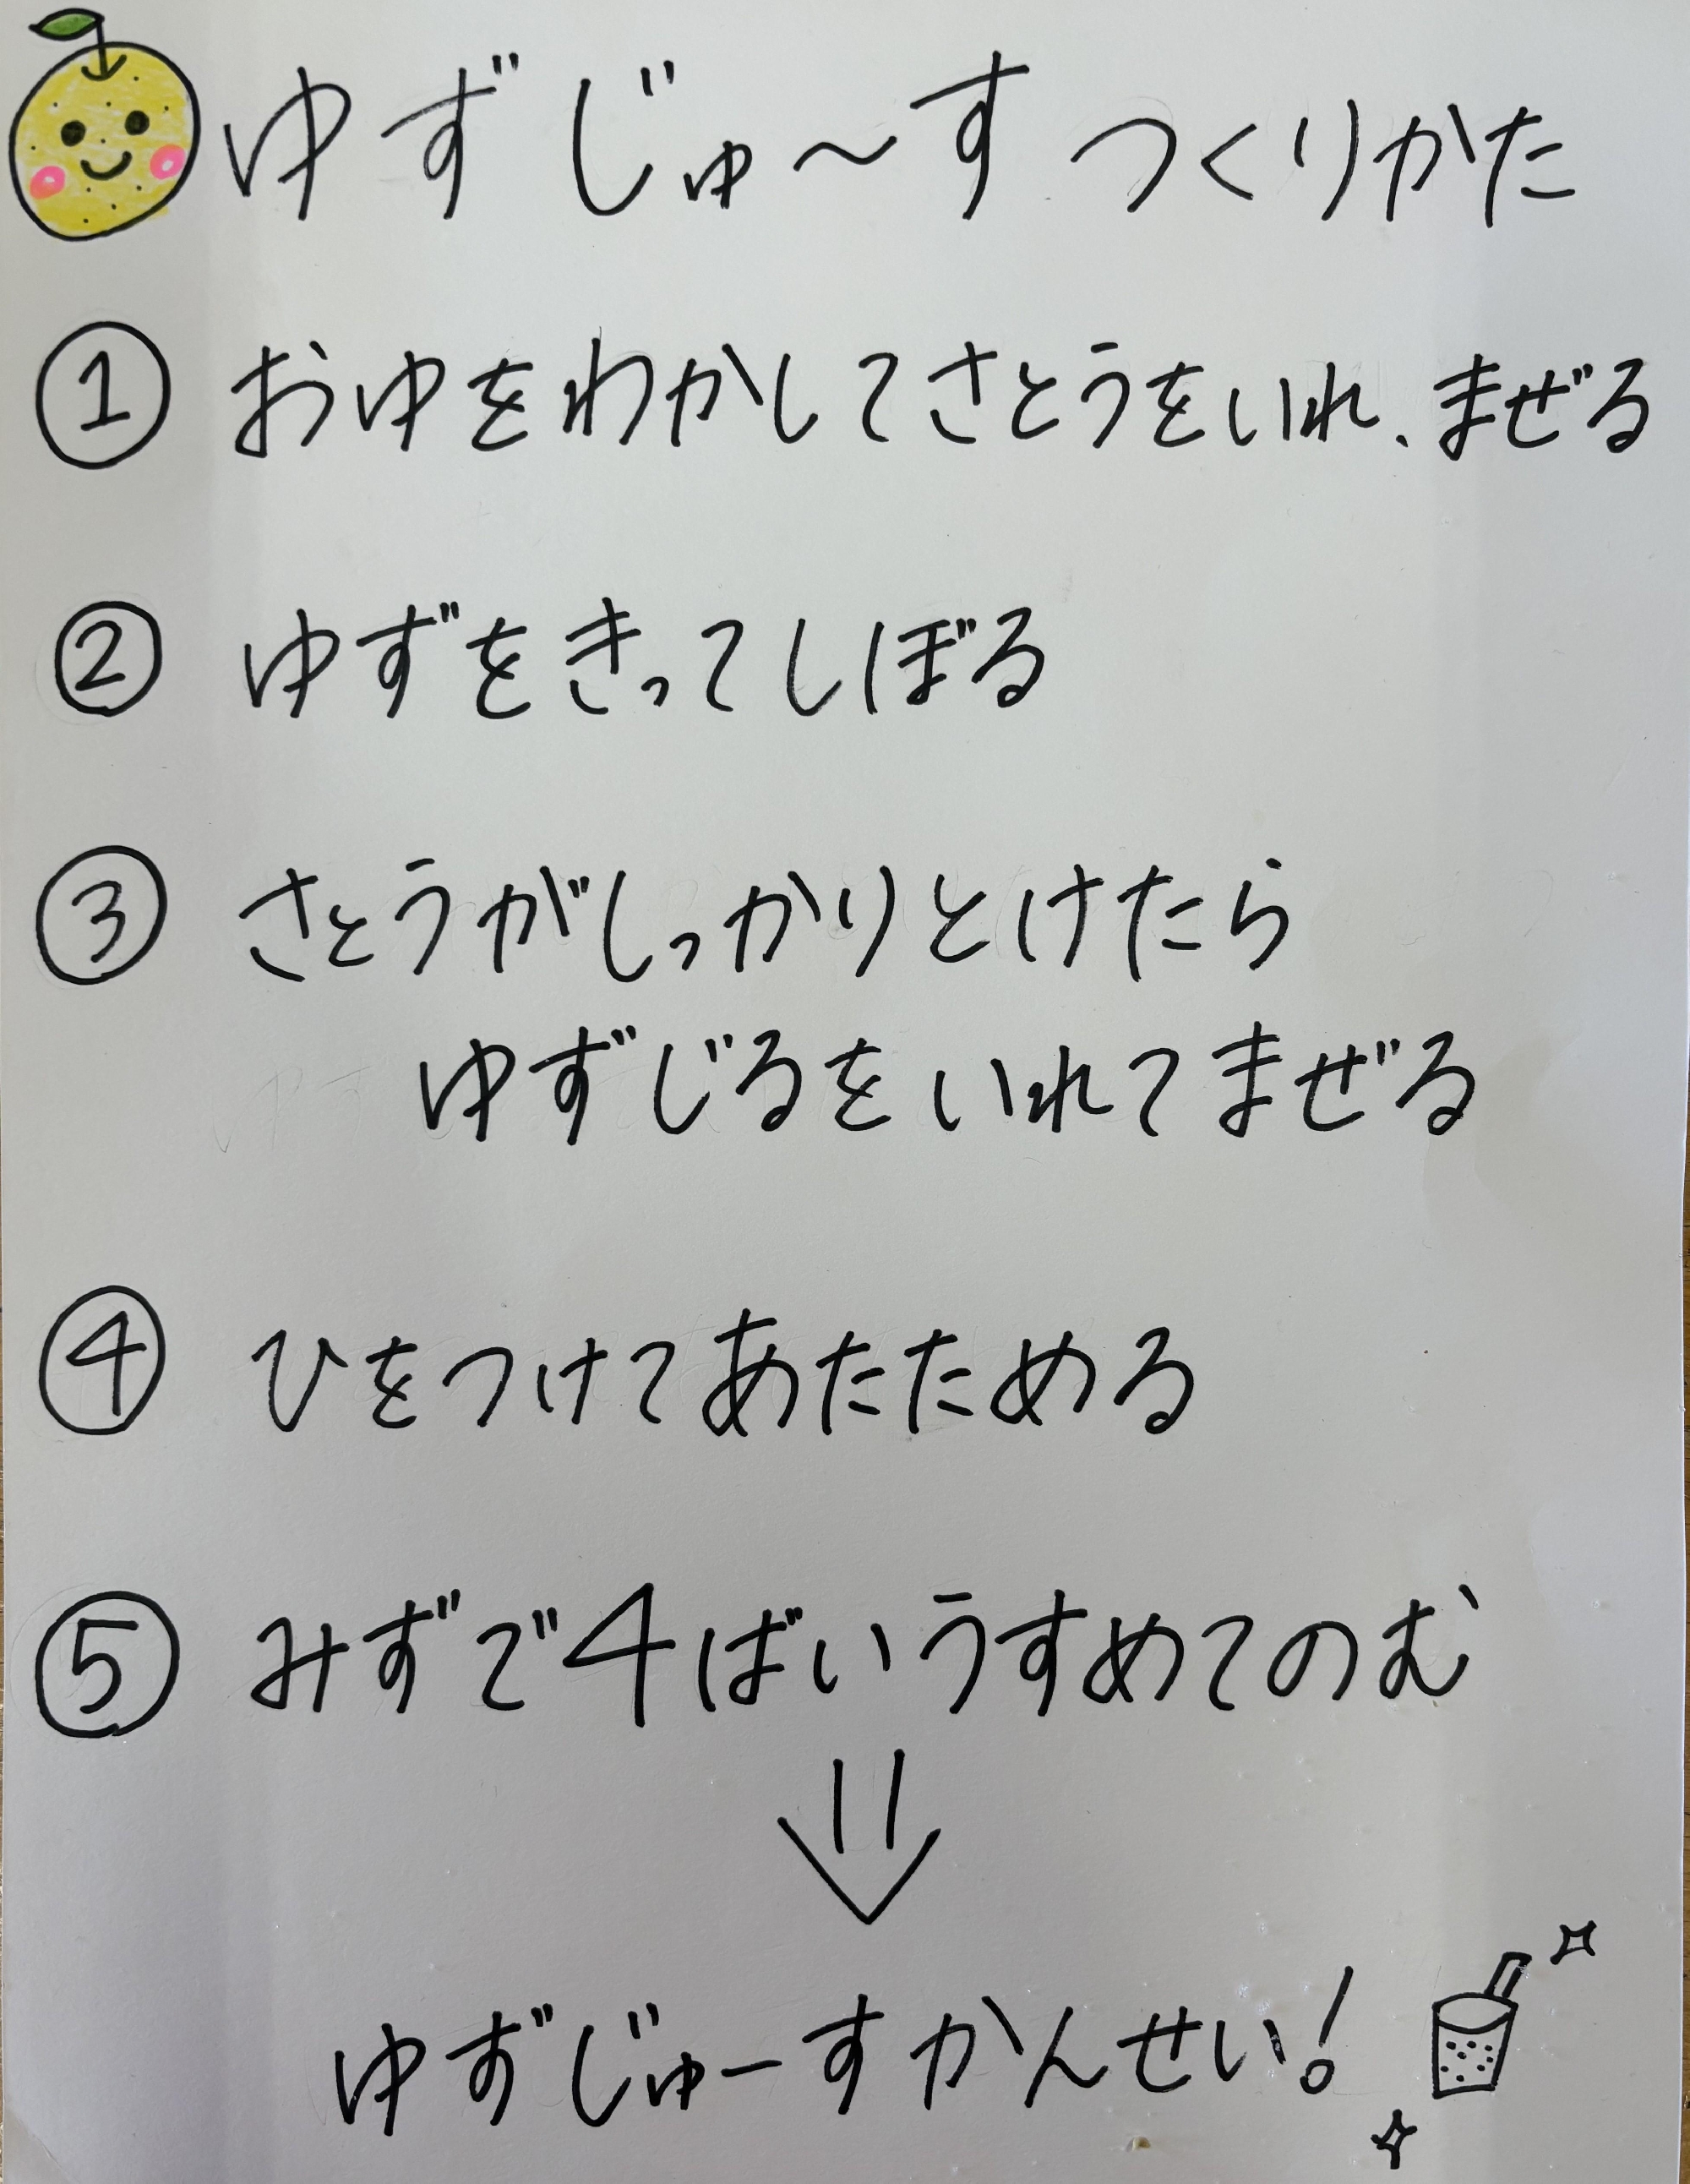 ゆずじゅ〜す つくりかた
① おゆをわかしてさとうをいれ、まぜる
② ゆずをきってしぼる
③ さとうがしっかりとけたら
ゆずじるをいれてまぜる
④ ひをつけてあたためる
⑤ みずで4ばいうすめてのむ
ゆずじゅーすかんせい!